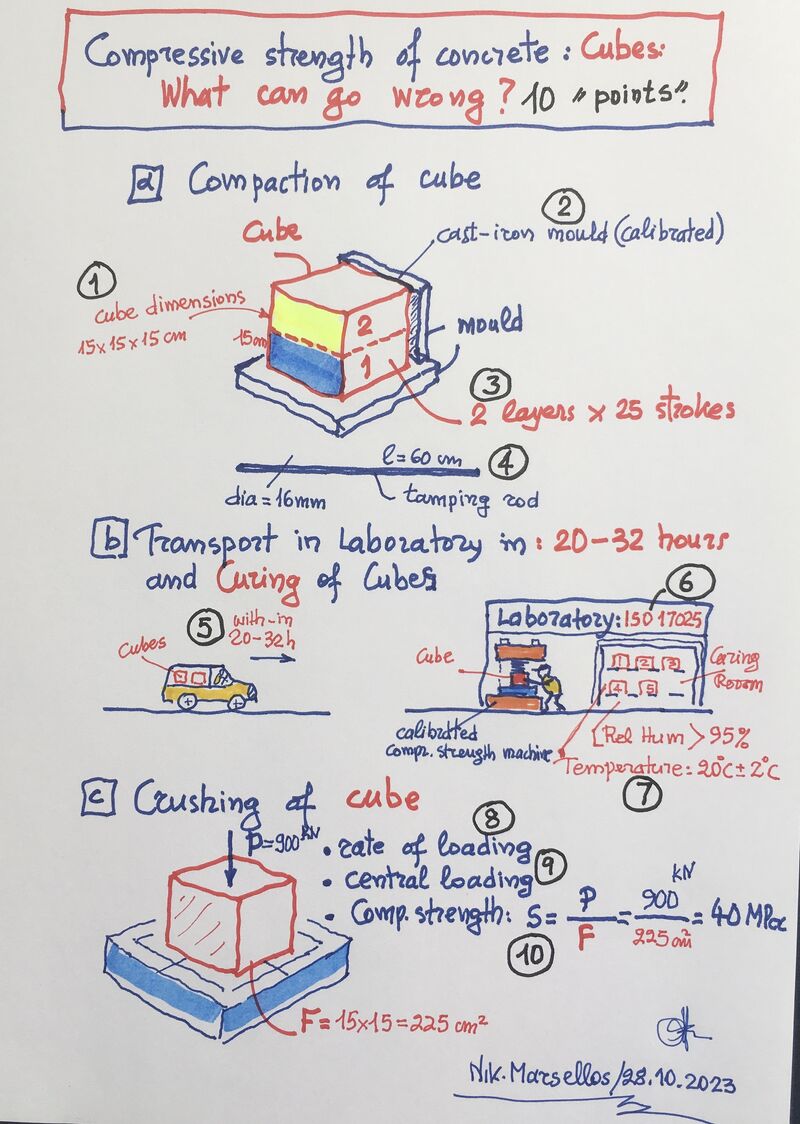 Compressive strength of concrete: Cubes:
What can go wrong? 10 "points".
a Compaction of cube
2
Cube
cast-iron mould (calibrated)
1
cube dimensions
15x15x15 cm
15cm
2
1
mould
3
2 layers x 25 strokes
l=60 cm
4
dia=16mm
tamping rod
b Transport in Laboratory in: 20-32 hours
and Curing of Cubes
5
with-in
20-32h
cubes
6
Laboratory: ISO 17025
Cube
1 2 3
4 5
Curing
Rooom
calibrated
compr. strength machine
[Rel Hum > 95%
Temperature: 20°C ± 2°C
7
c Crushing of cube
P=900 KN
8
• rate of loading
9
• central loading
• Comp. strength: S = P/F = 900 KN/225 cm² = 40 MPa
10
F = 15x15 = 225 cm²
Nik. Marsellos/28.10.2023